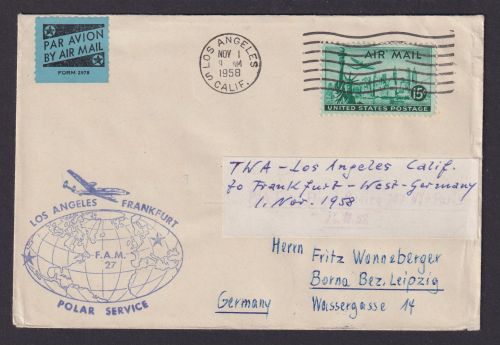 PAR AVION
BY AIR MAIL
FORM 2978
LOS ANGELES
NOV 1
1958
CALIF.
AIR MAIL
15¢
UNITED STATES POSTAGE
TWA - Los Angeles Calif.
to Frankfurt - West-Germany
1. Nov. 1958
LOS ANGELES FRANKFURT
F.A.M.
27
POLAR SERVICE
Herrn Fritz Wonneberger
Borna Bez. Leipzig
Germany Wassergasse 14